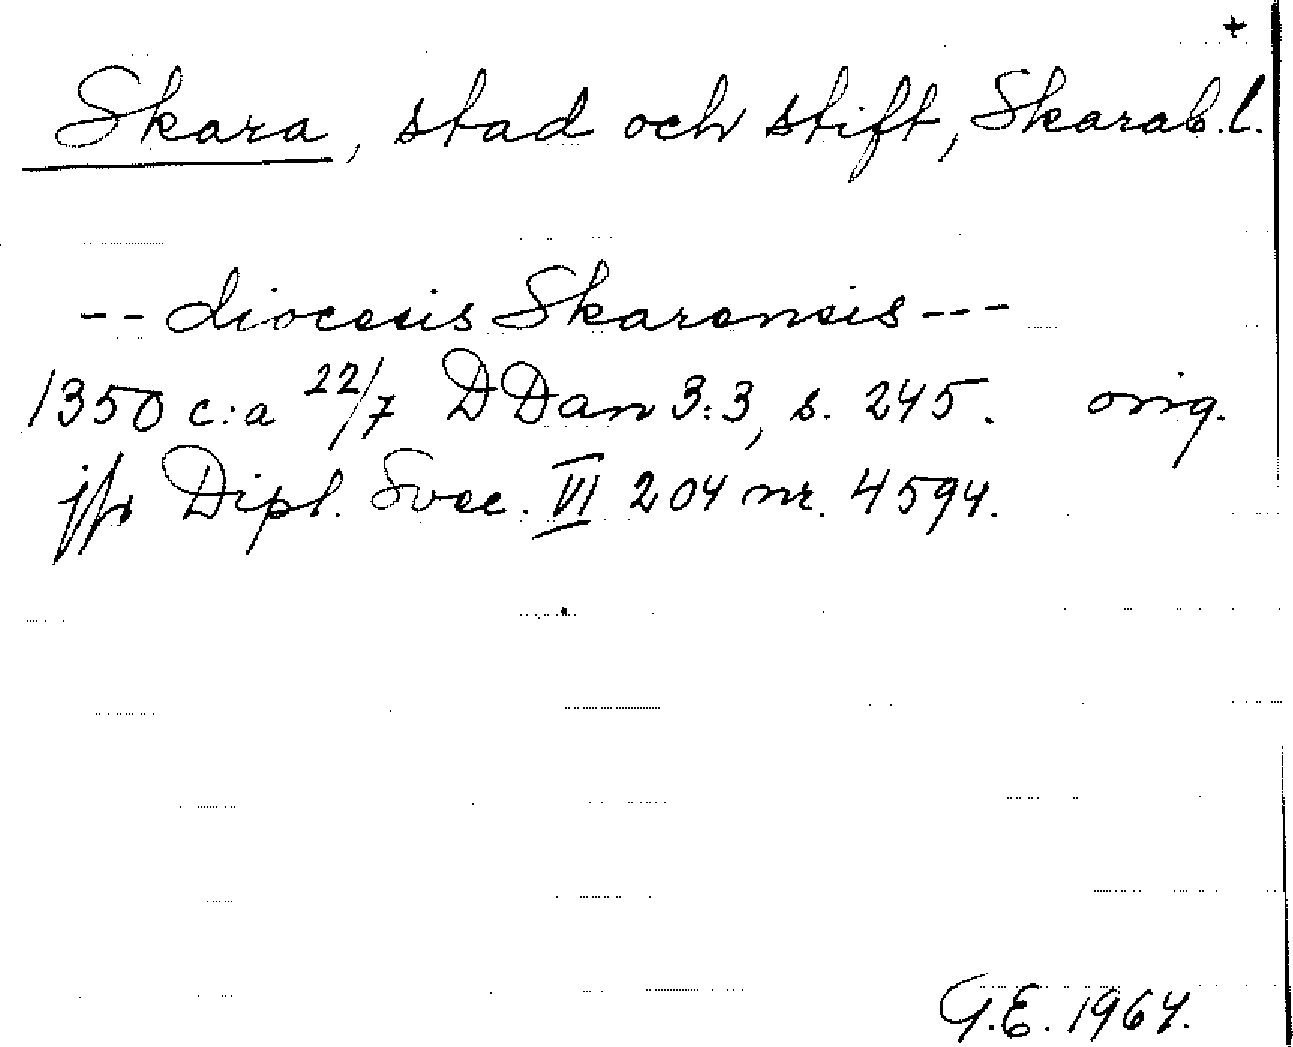 +
Skara, stad och stift, Skarab.l.
-- diocesis Skarensis ---
1350 c:a 22/7 DDan 3:3, s. 245. orig.
jfr Dipl. Svec. VI 204 nr. 4594.
G.E. 1964.